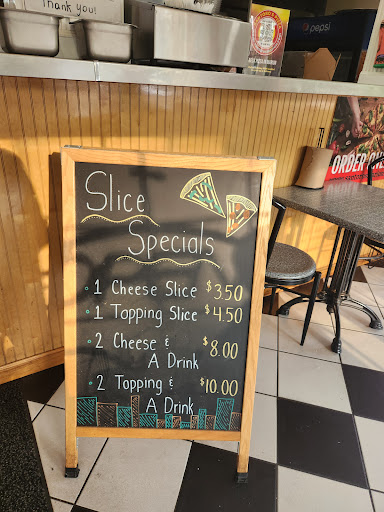 Thank you!
pepsi
ORDER ONL
Slice
Specials
1 Cheese Slice $3.50
1 Topping Slice $4.50
2 Cheese & $8.00
A Drink
2 Topping & $10.00
A Drink